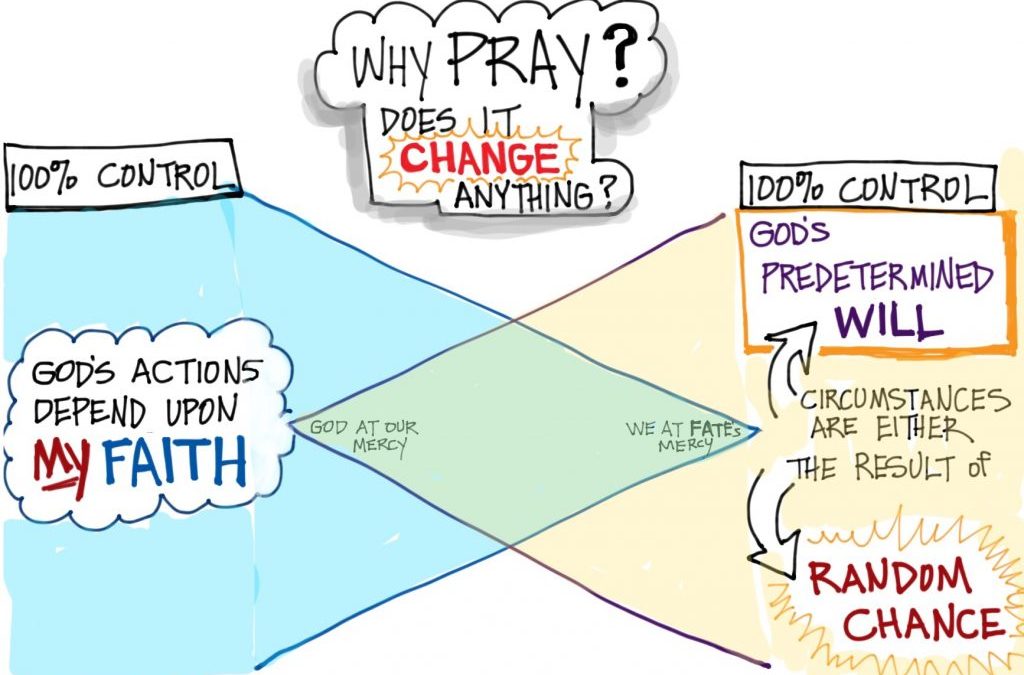 WHY PRAY?
DOES IT
CHANGE
ANYTHING?
100% CONTROL
GOD'S ACTIONS
DEPEND UPON
MY FAITH
GOD AT OUR
MERCY
WE AT FATE'S
MERCY
100% CONTROL
GOD'S
PREDETERMINED
WILL
CIRCUMSTANCES
ARE EITHER
THE RESULT OF
RANDOM
CHANCE